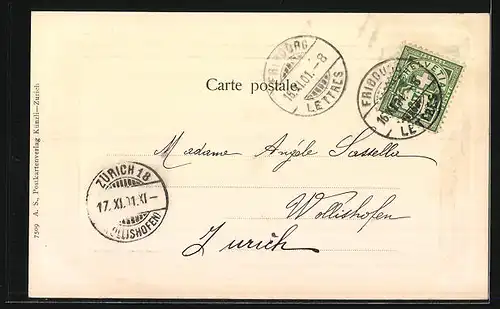 FRIBOURG
16.XI.01.-8
LETTRES
HELVETIA
FRIBOURG
LETTRES
Carte postale.
Madame Angèle Sassella
Wollishofen
Zurich
ZÜRICH 18
17.XI.01.XI-
(WOLLISHOFEN)
7509 A. S., Postkartenverlag Künzli—Zürich